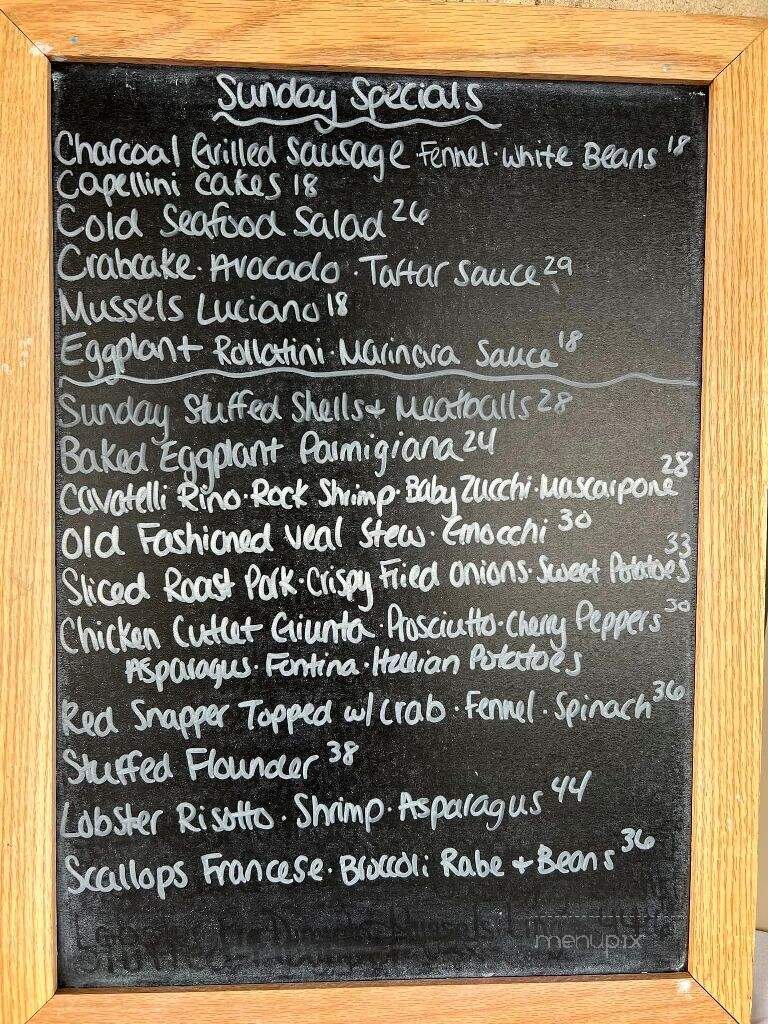 Sunday Specials
Charcoal Grilled Sausage Fennel · White Beans 18
Capellini Cakes 18
Cold Seafood Salad 26
Crabcake · Avocado · Tartar Sauce 29
Mussels Luciano 18
Eggplant Rollatini · Marinara Sauce 18
Sunday Stuffed Shells + Meatballs 28
Baked Eggplant Parmigiana 24
Cavatelli Rino · Rock Shrimp · Baby Zucchi · Mascarpone 28
Old Fashioned Veal Stew · Gnocchi 30
Sliced Roast Pork · Crispy Fried Onions · Sweet Potatoes 33
Chicken Cutlet Giunta · Prosciutto · Cherry Peppers 30
Asparagus · Fontina · Italian Potatoes
Red Snapper Topped w/ Crab · Fennel · Spinach 36
Stuffed Flounder 38
Lobster Risotto · Shrimp · Asparagus 44
Scallops Francese · Broccoli Rabe + Beans 36
menupix